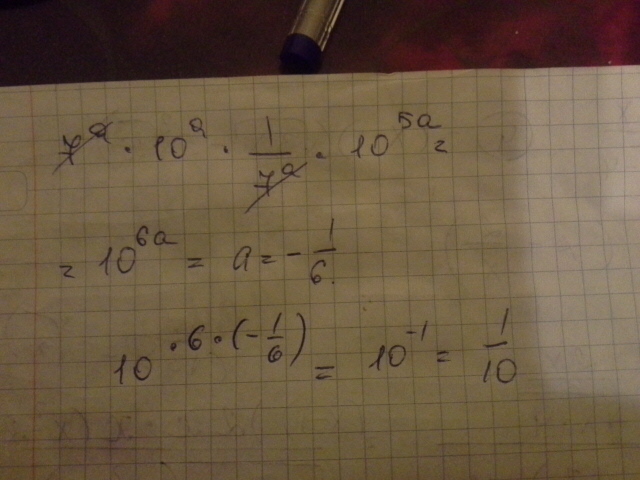 7^a · 10^a · 1/7^a · 10^5a =
= 10^6a = a = - 1/6.
10^· 6 · (- 1/6) = 10^-1 = 1/10